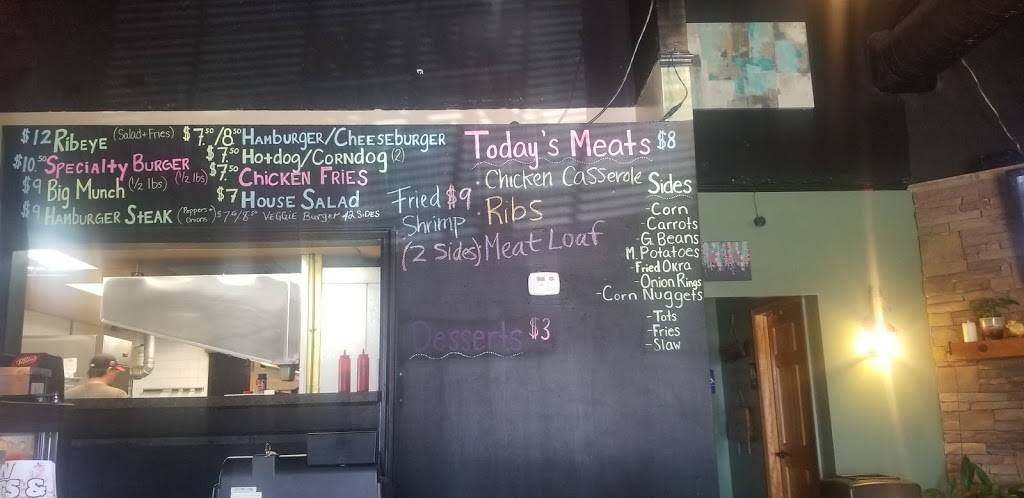 $12 Ribeye (Salad + Fries)
$10.50 Specialty Burger (1/2 lbs)
$9 Big Munch (1/2 lbs)
$9 Hamburger Steak (Peppers + Onions)
$7.50/8.50 Hamburger/Cheeseburger
$7.50 Hotdog/Corndog (2)
$7.50 Chicken Fries
$7 House Salad
VEGGIE Burger +2 Sides
Today's Meats $8
· Chicken Casserole
· Ribs
Meat Loaf
Fried $9
Shrimp
(2 Sides)
Sides
-Corn
-Carrots
-G. Beans
M. Potatoes
-Fried Okra
-Onion Rings
-Corn Nuggets
-Tots
-Fries
-Slaw
Desserts $3